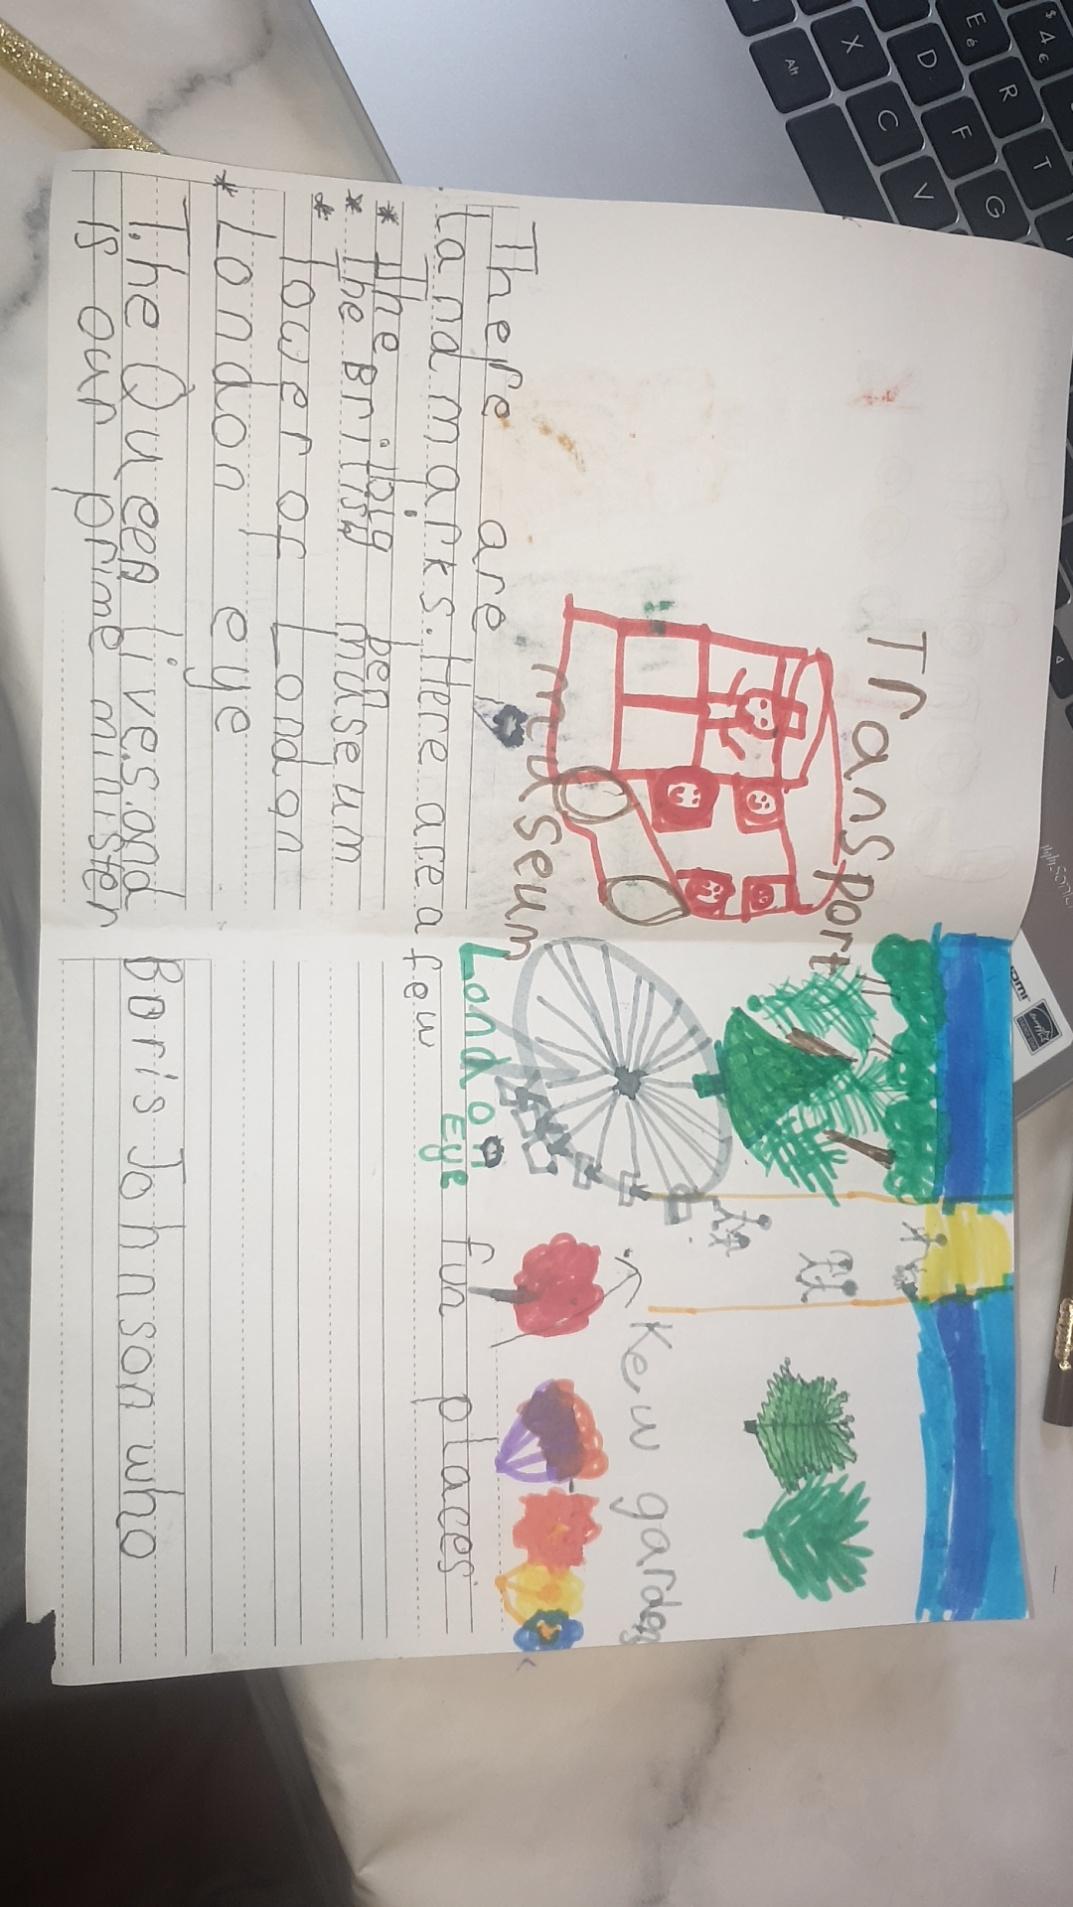 Transport
museum
London
Eye
Kew gardens
There are fun places
Landmarks. Here are a few
* The big ben
* The British museum
* Tower of London
* London eye
The Queen lives and Boris Johnson who
is our prime minister
$ 4 €
E é R T
D F G
X C V
Alt